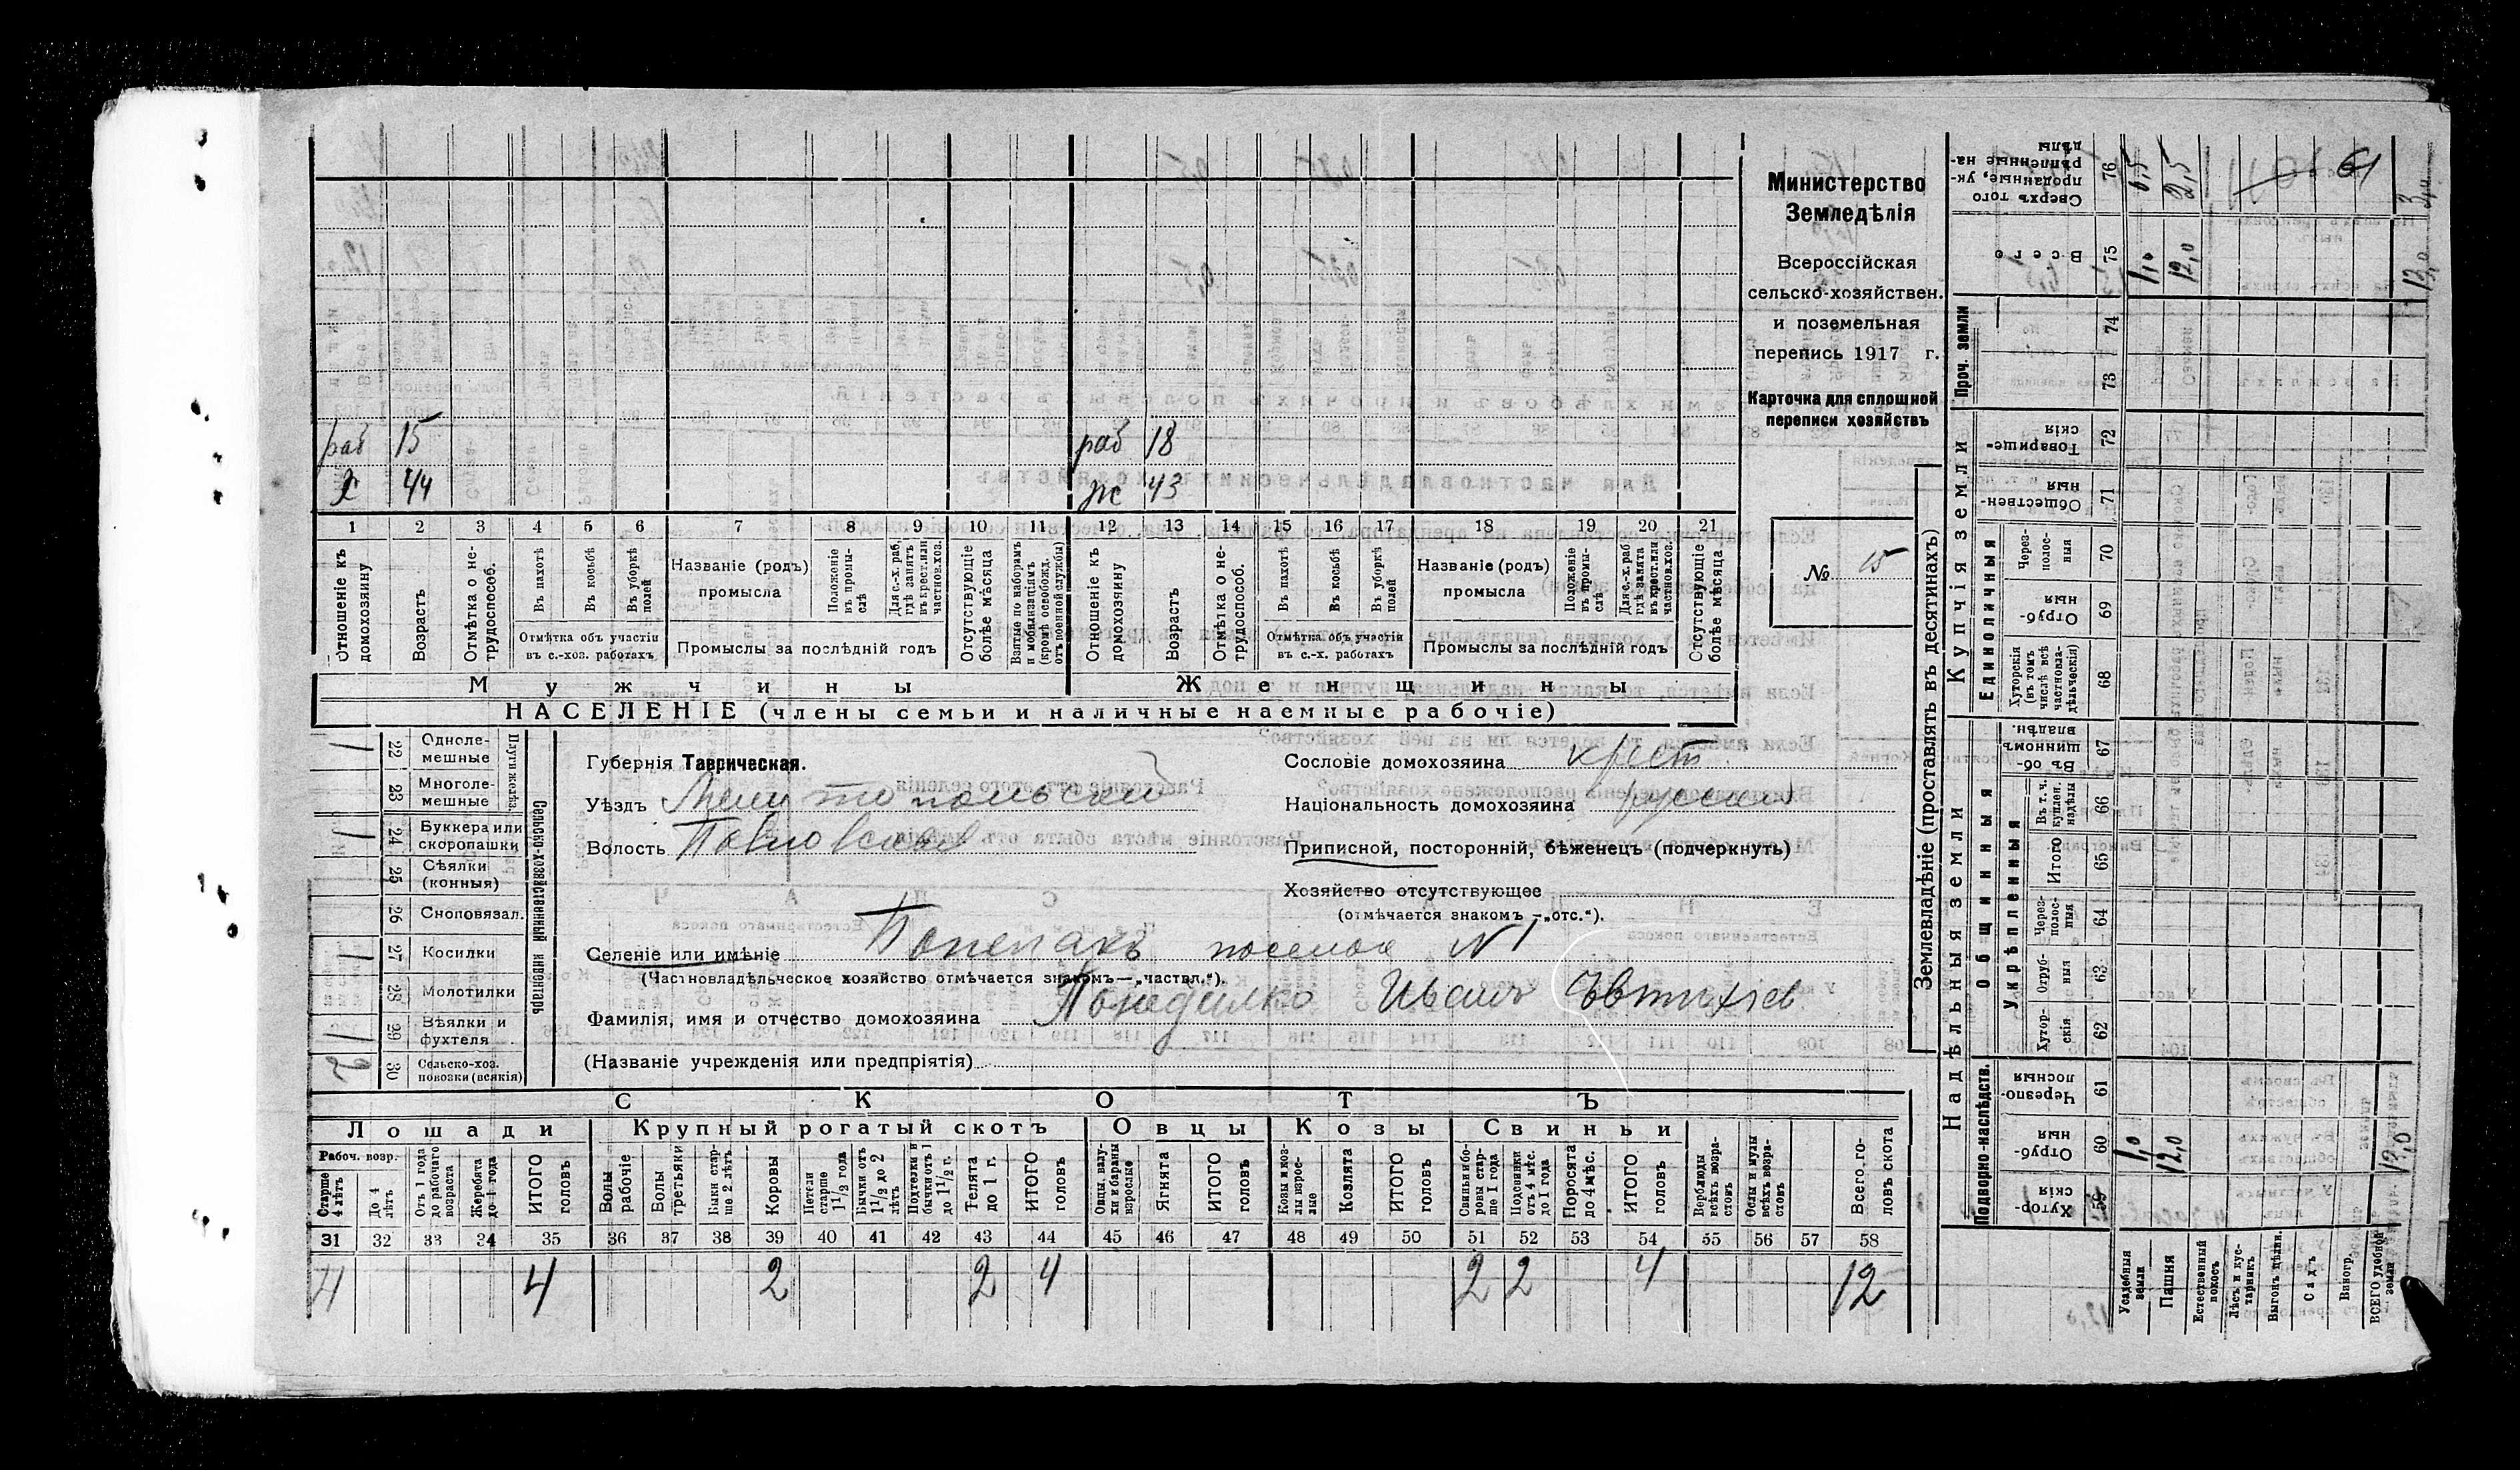 Министерство
Земледѣлія
Всероссійская
сельско-хозяйствен.
и поземельная
перепись 1917 г.
Карточка для сплошной
переписи хозяйствъ
№ 15
61
раб 15 раб 18
х 44 ж 43
1 2 3 4 5 6 7 8 9 10 11 12 13 14 15 16 17 18 19 20 21
Отношеніе къ домохозяину
Возрастъ
Отмѣтка о не-трудоспособ.
Въ пахотѣ
Въ косьбѣ
Въ уборкѣ полей
Отмѣтка объ участіи
въ с.-хоз. работахъ
Названіе (родъ)
промысла
Положеніе въ промы-слѣ
Для с.-х. раб. гдѣ занятъ въ крест. или частнов. хоз.
Промыслы за послѣдній годъ
Отсутствующіе болѣе мѣсяца
Взятые по наборамъ и мобилизаціямъ (кромѣ освобожд. отъ военной службы)
Отношеніе къ домохозяину
Возрастъ
Отмѣтка о не-трудоспособ.
Въ пахотѣ
Въ косьбѣ
Въ уборкѣ полей
Отмѣтка объ участіи
въ с.-х. работахъ
Названіе (родъ)
промысла
Положеніе въ промы-слѣ
Для с.-х. раб. гдѣ занята въ крест. или частнов. хоз.
Промыслы за послѣдній годъ
Отсутствующіе болѣе мѣсяца
Мужчины Женщины
НАСЕЛЕНІЕ (члены семьи и наличные наемные рабочіе)
Сельско-хозяйственный инвентарь
1 22 Одноле-мешные
23 Многоле-мешные
1 24 Буккера или скоропашки
25 Сѣялки (конныя)
26 Сноповязал.
1 27 Косилки
28 Молотилки
1 29 Вѣялки и фухтеля
2 30 Сельско-хоз. повозки (всякія)
Губернія Таврическая.
Уѣздъ Мелитопольский
Волость Павловская
Сословіе домохозяина крест.
Національность домохозяина русский
Приписной, посторонній, бѣженецъ (подчеркнуть)
Хозяйство отсутствующее
(отмѣчается знакомъ —„отс.“).
Селеніе или имѣніе поселок N 1
(Частновладѣльческое хозяйство отмѣчается знакомъ—„частвл.“).
Фамилія, имя и отчество домохозяина Понедилко Иванъ Евтихіев
(Названіе учрежденія или предпріятія)
СКОТЪ
Лошади Крупный рогатый скотъ Овцы Козы Свиньи
Рабоч. возр.
Старше 4 лѣтъ
До 4 лѣтъ
Отъ 1 года до рабочаго возраста
Жеребята до 1 года
ИТОГО головъ
Волы рабочіе
Волы третьяки
Быки стар-ше 2 лѣтъ
Коровы
Нетели старше 1 1/2 года
Бычки отъ 1 1/2 до 2 лѣтъ
Подтелки и бычки отъ 1 до 1 1/2 г.
Телята до 1 г.
ИТОГО головъ
Овцы, валу-хи и бараны взрослые
Ягнята
ИТОГО головъ
Козы и коз-лы взрос-лые
Козлята
ИТОГО головъ
Свиньи и бо-ровы стар-ше 1 года
Подсвинки отъ 4 мѣс. до 1 года
Поросята до 4 мѣс.
ИТОГО головъ
Верблюды всѣхъ возра-стовъ
Ослы и мулы всѣхъ возра-стовъ
Всего го-ловъ скота
31 32 33 34 35 36 37 38 39 40 41 42 43 44 45 46 47 48 49 50 51 52 53 54 55 56 57 58
4 4 2 2 4 2 2 4 12
Землевладѣніе (проставлять въ десятинахъ)
Надѣльныя земли Купчія земли Проч. земли
Подворно-наслѣдств. Общинныя Единоличныя
Укрѣпленныя
Хутор-скія 59
Отруб-ныя 60 1,0 12,0 12,0
Черезпо-лосныя 61
Хутор-скія 62
Отруб-ныя 63
Через-полос-ныя 64
Итого 65
Въ т. ч. куплен. надѣлы 66
Въ об-щинномъ владѣн. 67
Хуторскія (въ томъ числѣ всѣ частновла-дѣльческія) 68
Отруб-ныя 69
Через-полос-ныя 70
Обществен-ныя 71
Товарище-скія 72
73
74
Всего 75 1,0 12,0
Сверхъ того проданные, ук-рѣпленные на-дѣлы 76
Усадебныя земли
Пашня
Естественный покосъ
Лѣсъ и кус-тарникъ
Выгонъ цѣлин.
Садъ
Виногр.
ВСЕГО удобной земли